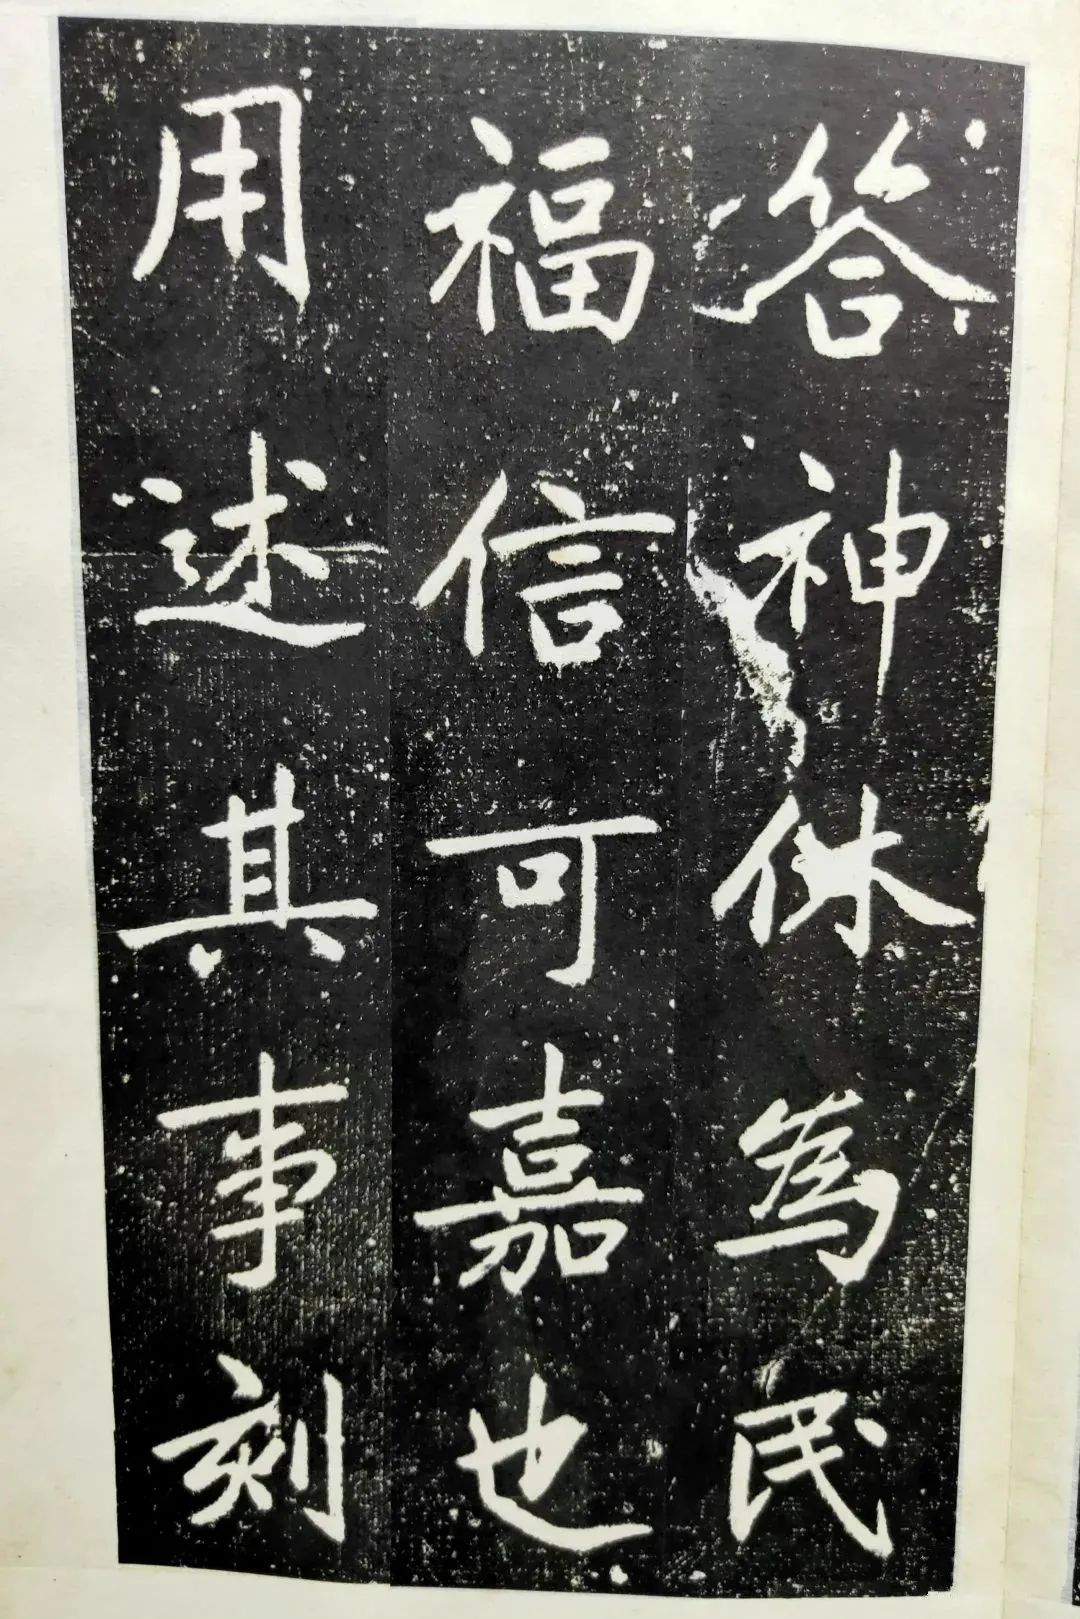 答神休為民
福信可嘉也
用述其事刻